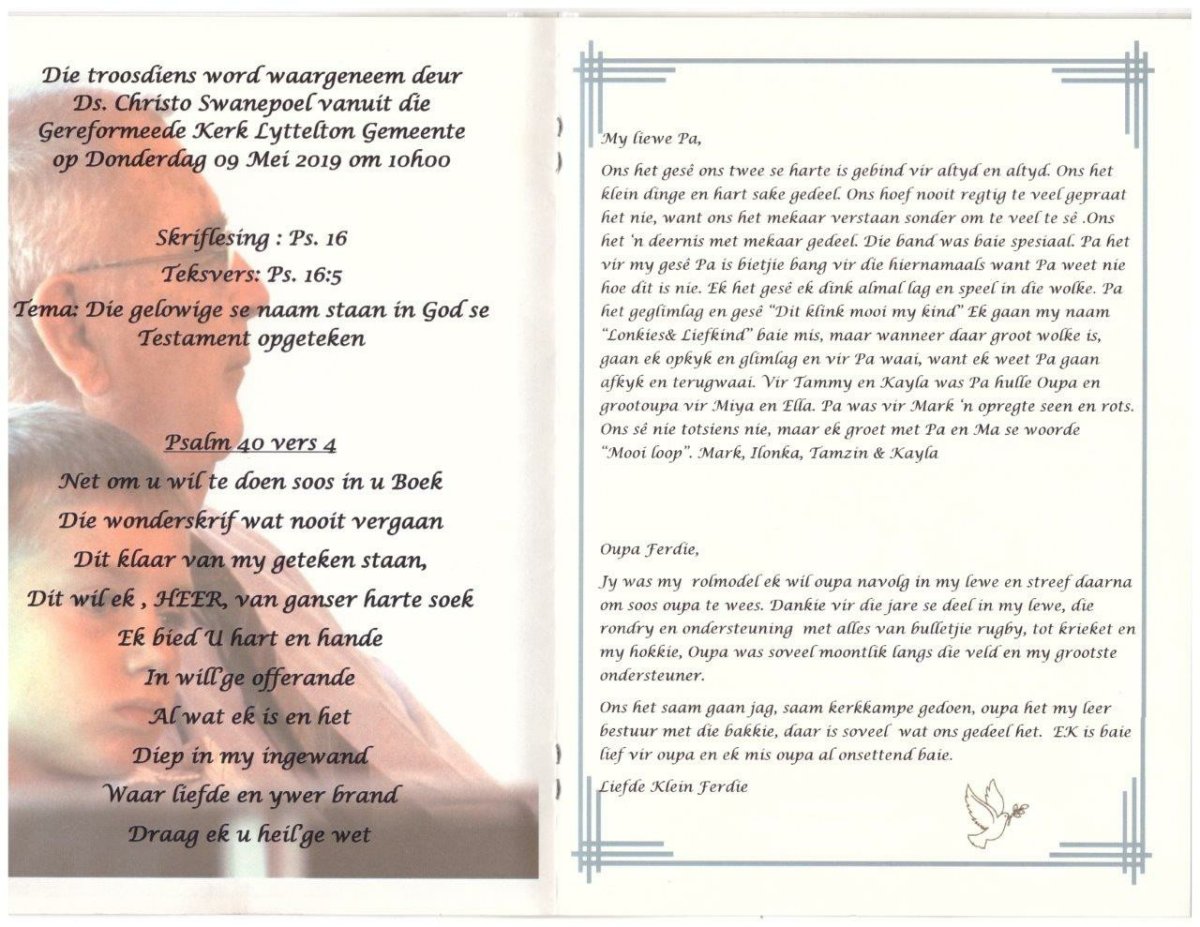 Die troosdiens word waargeneem deur
Ds. Christo Swanepoel vanuit die
Gereformeede Kerk Lyttelton Gemeente
op Donderdag 09 Mei 2019 om 10h00
Skriflesing : Ps. 16
Teksvers: Ps. 16:5
Tema: Die gelowige se naam staan in God se
Testament opgeteken
Psalm 40 vers 4
Net om u wil te doen soos in u Boek
Die wonderskrif wat nooit vergaan
Dit klaar van my geteken staan,
Dit wil ek , HEER, van ganser harte soek
Ek bied U hart en hande
In will'ge offerande
Al wat ek is en het
Diep in my ingewand
Waar liefde en ywer brand
Draag ek u heil'ge wet
My liewe Pa,
Ons het gesê ons twee se harte is gebind vir altyd en altyd. Ons het
klein dinge en hart sake gedeel. Ons hoef nooit regtig te veel gepraat
het nie, want ons het mekaar verstaan sonder om te veel te sê .Ons
het 'n deernis met mekaar gedeel. Die band was baie spesiaal. Pa het
vir my gesê Pa is bietjie bang vir die hiernamaals want Pa weet nie
hoe dit is nie. Ek het gesê ek dink almal lag en speel in die wolke. Pa
het geglimlag en gesê “Dit klink mooi my kind” Ek gaan my naam
“Lonkies& Liefkind” baie mis, maar wanneer daar groot wolke is,
gaan ek opkyk en glimlag en vir Pa waai, want ek weet Pa gaan
afkyk en terugwaai. Vir Tammy en Kayla was Pa hulle Oupa en
grootoupa vir Miya en Ella. Pa was vir Mark 'n opregte seen en rots.
Ons sê nie totsiens nie, maar ek groet met Pa en Ma se woorde
“Mooi loop”. Mark, Ilonka, Tamzin & Kayla
Oupa Ferdie,
Jy was my rolmodel ek wil oupa navolg in my lewe en streef daarna
om soos oupa te wees. Dankie vir die jare se deel in my lewe, die
rondry en ondersteuning met alles van bulletjie rugby, tot krieket en
my hokkie, Oupa was soveel moontlik langs die veld en my grootste
ondersteuner.
Ons het saam gaan jag, saam kerkkampe gedoen, oupa het my leer
bestuur met die bakkie, daar is soveel wat ons gedeel het. EK is baie
lief vir oupa en ek mis oupa al onsettend baie.
Liefde Klein Ferdie